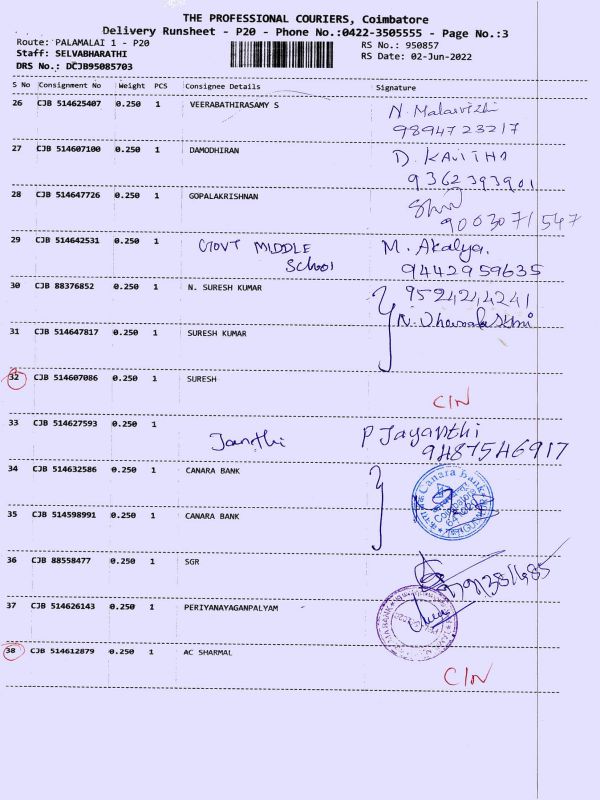 THE PROFESSIONAL COURIERS, Coimbatore
Delivery Runsheet - P20 - Phone No.:0422-3505555 - Page No.:3
Route: PALAMALAI 1 - P20
RS No.: 950857
Staff: SELVABHARATHI
RS Date: 02-Jun-2022
DRS No.: DCJB95085703
S No Consignment No Weight PCS Consignee Details Signature
26 CJB 514625407 0.250 1 VEERABATHIRASAMY S N. Malarvizhi
9894723217
27 CJB 514607100 0.250 1 DAMODHIRAN D. KAVITHA
9362393901
28 CJB 514647726 0.250 1 GOPALAKRISHNAN
9003071547
29 CJB 514642531 0.250 1 GOVT MIDDLE School M. Akalya.
9442959635
30 CJB 88376852 0.250 1 N. SURESH KUMAR
31 CJB 514647817 0.250 1 SURESH KUMAR
32 CJB 514607086 0.250 1 SURESH
C/N
33 CJB 514627593 0.250 1 Janthi P Jayanthi
9487546917
34 CJB 514632586 0.250 1 CANARA BANK
Canara Bank
35 CJB 514598991 0.250 1 CANARA BANK
36 CJB 88558477 0.250 1 SGR
37 CJB 514626143 0.250 1 PERIYANAYAGANPALYAM
38 CJB 514612879 0.250 1 AC SHARMAL
C/N